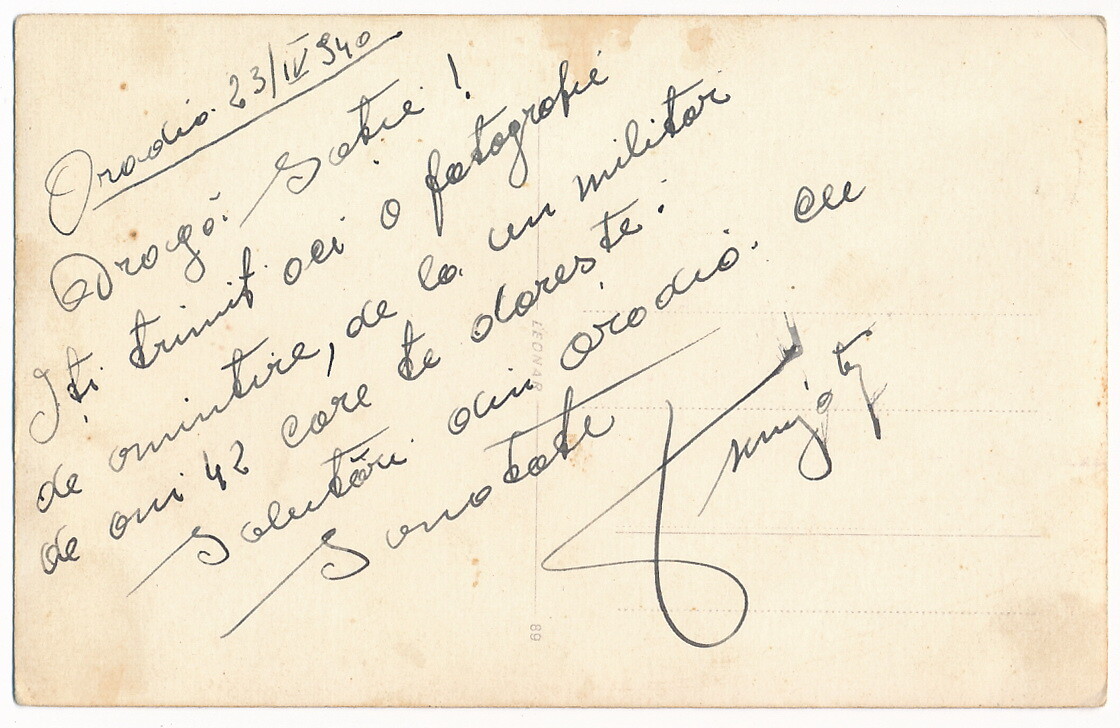 Oradia 23/IV 940
Dragă Soție!
Iți trimit aci o fotografie
de amintire, de la un militar
de ani 42 care te dorește.
Salutări din Oradia. cu
Sanatate
LEONAR
89